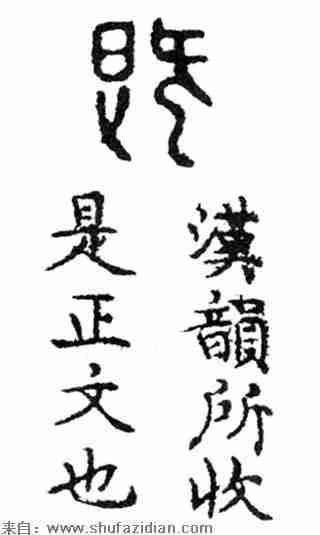 既
漢韻所收
是正文也
来自：www.shufazidian.com